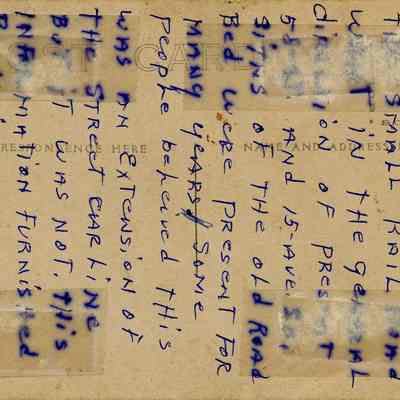 SMALL RAIL ROAD
WENT IN THE GENERAL
DIRECTION OF PRESENT
AND 15-AVE. SO.
SIGNS OF THE OLD ROAD
BED WERE PRESENT FOR
MANY YEARS, SOME
PEOPLE BELIEVED THIS
WAS AN EXTENSION OF
THE STREETCAR LINE
BUT IT WAS NOT. THIS
INFORMATION FURNISHED
ST CARD
RESPONDENCE HERE
NAME AND ADDRESS